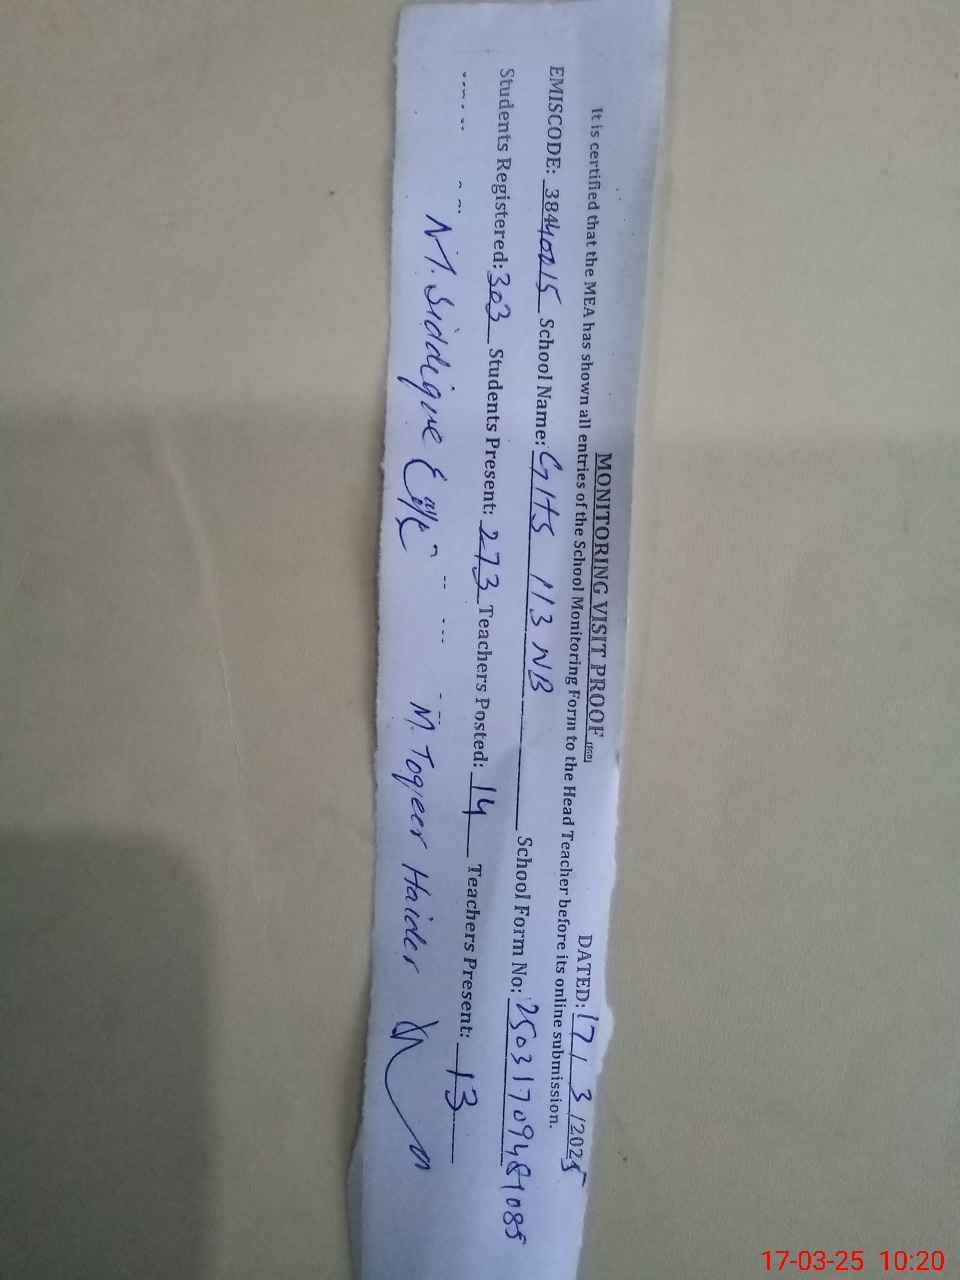 MONITORING VISIT PROOF
DATED: 17/3/2025
It is certified that the MEA has shown all entries of the School Monitoring Form to the Head Teacher before its online submission.
EMISCODE: 38440015 School Name: GHS 113 NB School Form No:
Students Registered: 303 Students Present: 273 Teachers Posted: 14 Teachers Present: 13
M. Siddique M. Toqeer Haider
17-03-25 10:20